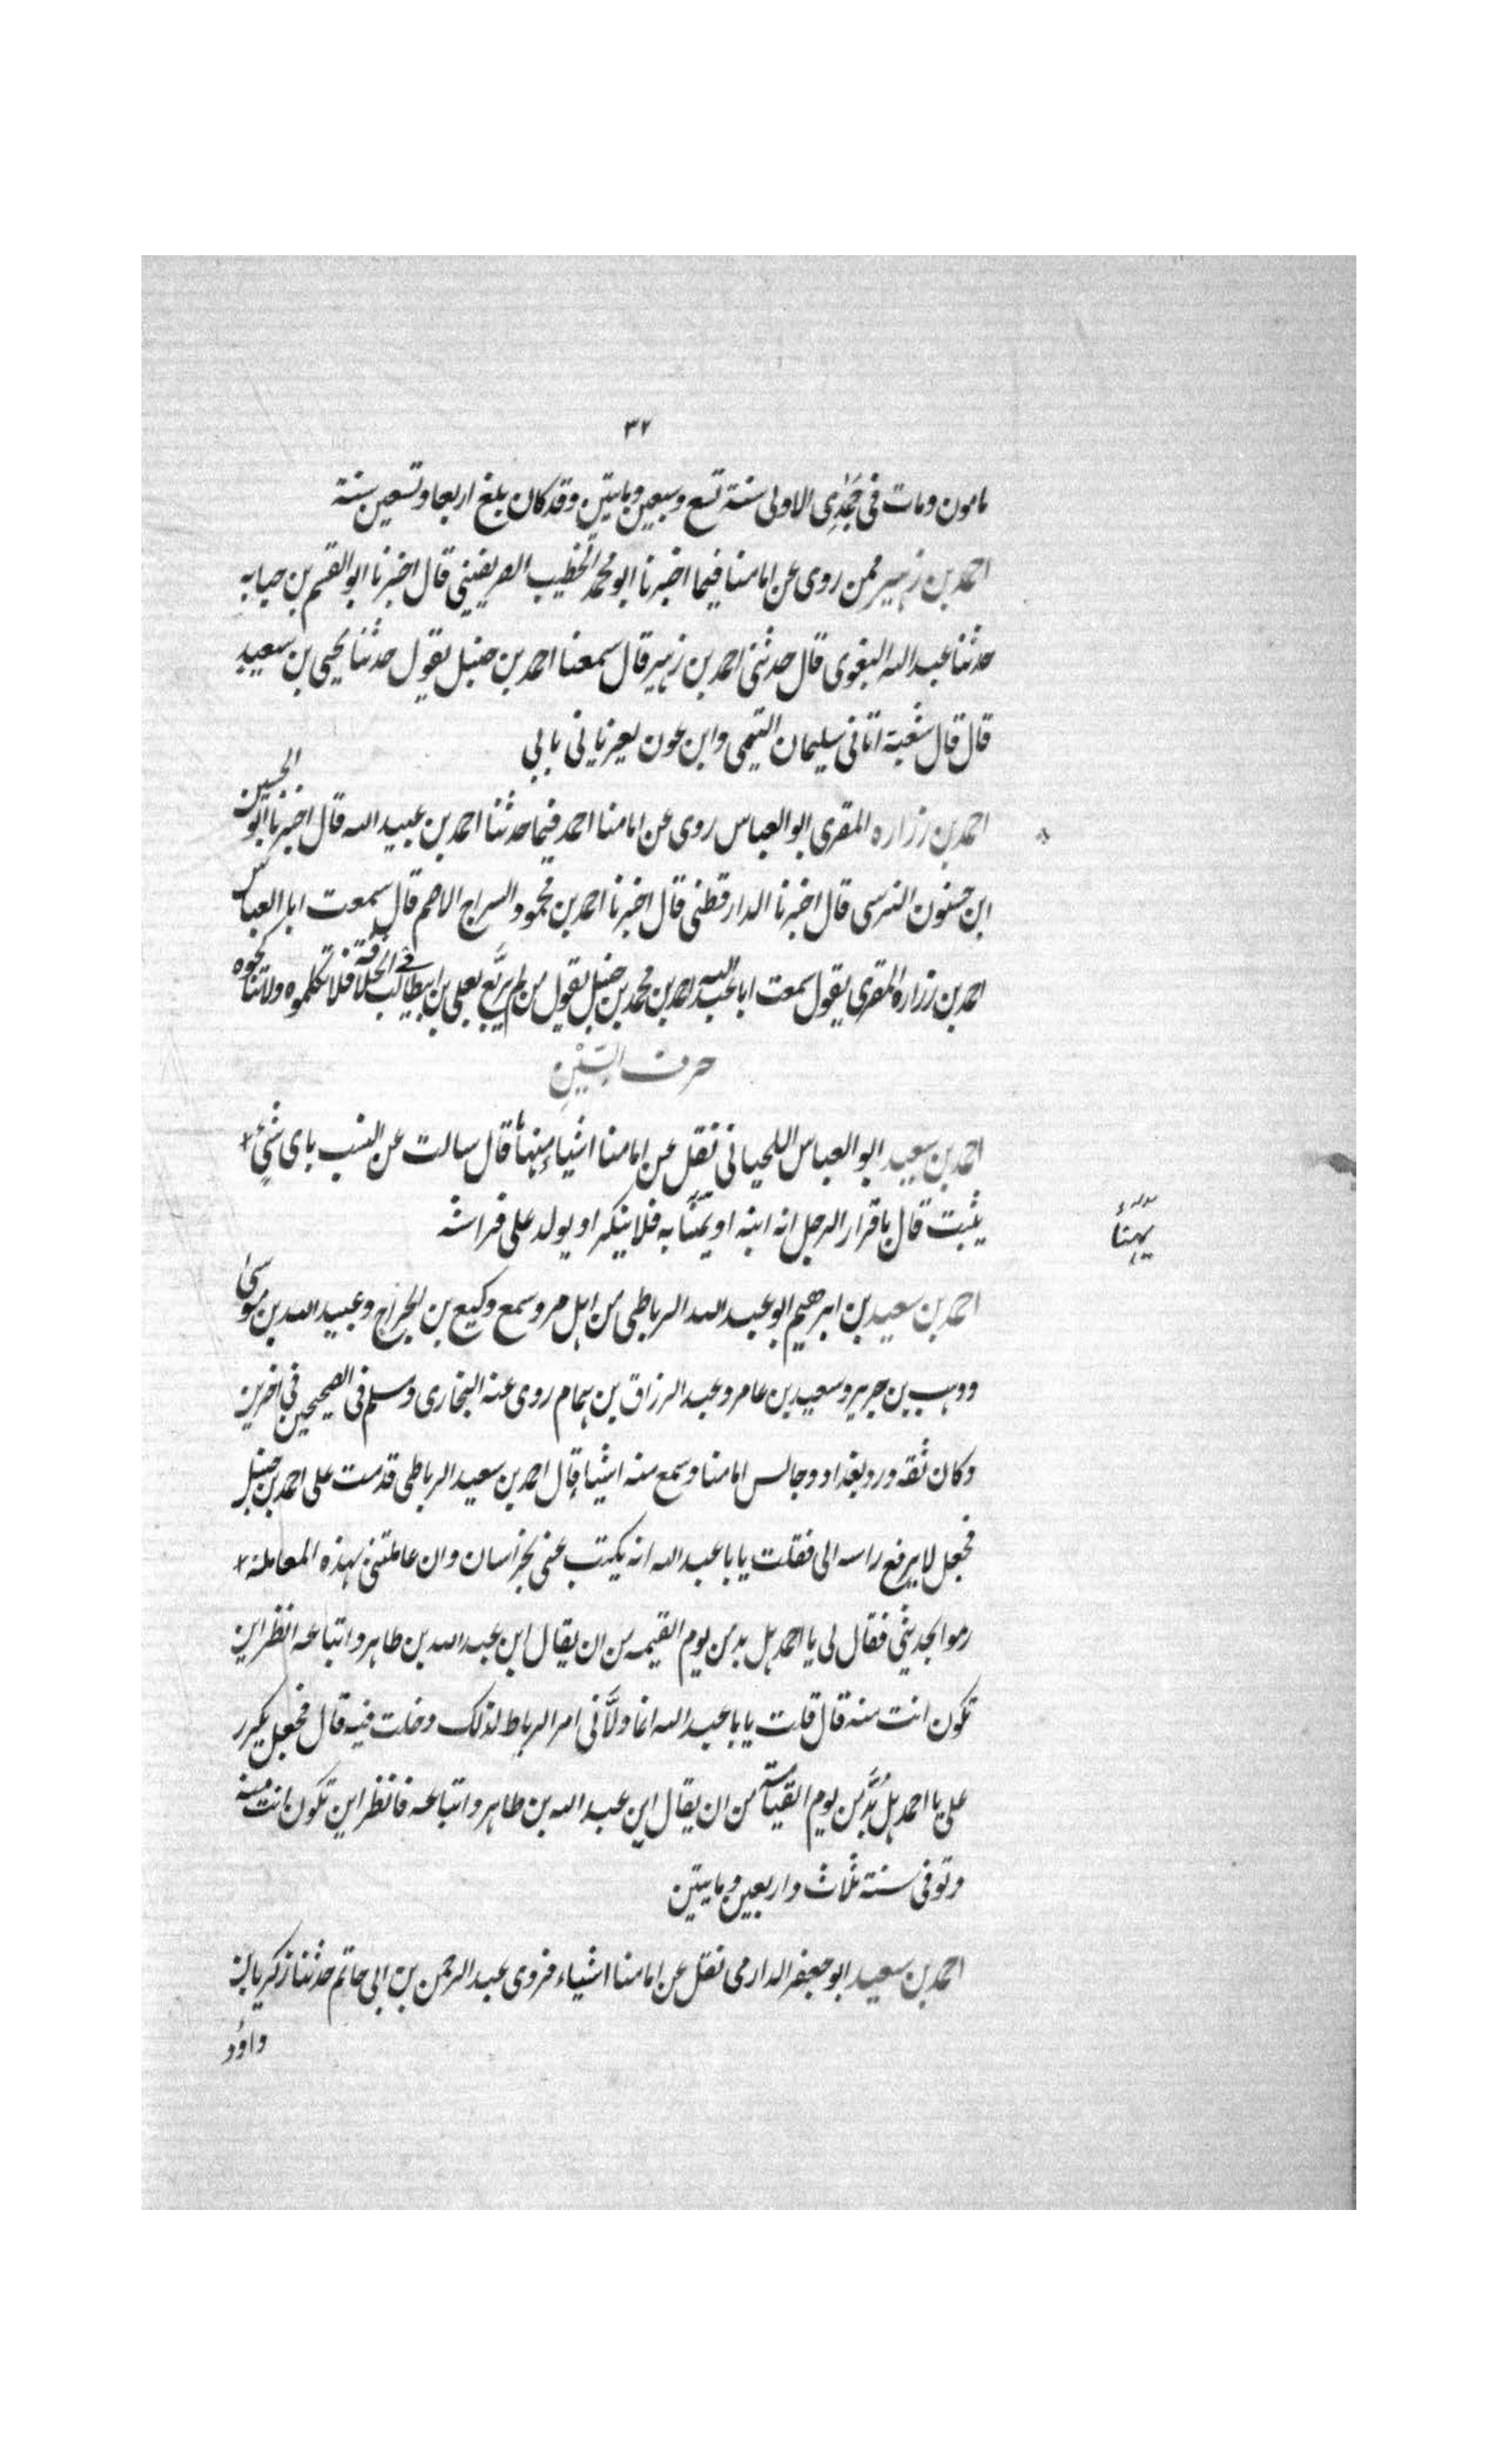 ٣٢
مامون ومات فى جمدى الاولى سنة تسع وسبعين ومايتين وقد كان بلغ اربعا وتسعين سنة
احمد بن زهير ممن روى عن امامنا فيما اخبرنا ابو محمد الخطيب الصريفينى قال اخبرنا ابو القسم بن حبابه
حدثنا عبد الله البغوى قال حدثنى احمد بن زهير قال سمعنا احمد بن حنبل يقول حدثنا يحيى بن سعيد
قال قال شعبة اتانى سليمان التيمى وابن عون يعزيانى بابى
احمد بن زراره المقرى ابو العباس روى عن امامنا احمد فيما حدثنا احمد بن عبيد الله قال اخبرنا ابو الحسين
ابن حسنون النرسى قال اخبرنا الدارقطنى قال اخبرنا احمد بن محمود السراج الاصم قال سمعت ابا العباس
احمد بن زراره المقرى يقول سمعت ابا عبد الله احمد بن محمد بن حنبل يقول من لم يربع بعلى بن ابيطالب فى الخلافة فلا تكلموه ولا تناكحوه
حرف السين
احمد بن سعيد ابو العباس اللحيانى نقل عن امامنا اشياء منها قال سالت عن النسب باى شىء
يثبت قال باقرار الرجل انه ابنه او يهنّا به فلا ينكر او يولد على فراشه
يهنّأ
احمد بن سعيد بن ابرهيم ابو عبد الله الرباطى من اهل مرو سمع وكيع بن الجراح وعبيد الله بن موسى
ووهب بن جرير وسعيد بن عامر وعبد الرزاق بن همام روى عنه البخارى ومسلم فى الصحيحين فى اخرين
وكان ثقه ورد بغداد وجالس امامنا وسمع منه اشيا قال احمد بن سعيد الرباطى قدمت على احمد بن حنبل
فجعل لا يرفع راسه الى فقلت يا با عبد الله انه يكتب عنى بخراسان وان عاملتنى بهذه المعاملة
رموا بحديثى فقال لى يا احمد هل بد من يوم القيمه من ان يقال اين عبد الله بن طاهر واتباعه انظر اين
تكون انت منه قال قلت يا با عبد الله انما ولّانى امر الرباط لذلك دخلت فيه قال فجعل يكرر
على يا احمد هل بُدّ من يوم القيامة من ان يقال اين عبد الله بن طاهر واتباعه فانظر اين تكون انت منه
وتوفى سنة ثلاث واربعين ومايتين
احمد بن سعيد ابو جعفر الدارمى نقل عن امامنا اشياء فروى عبد الرحمن بن ابى حاتم حدثنا زكريا بن
داود